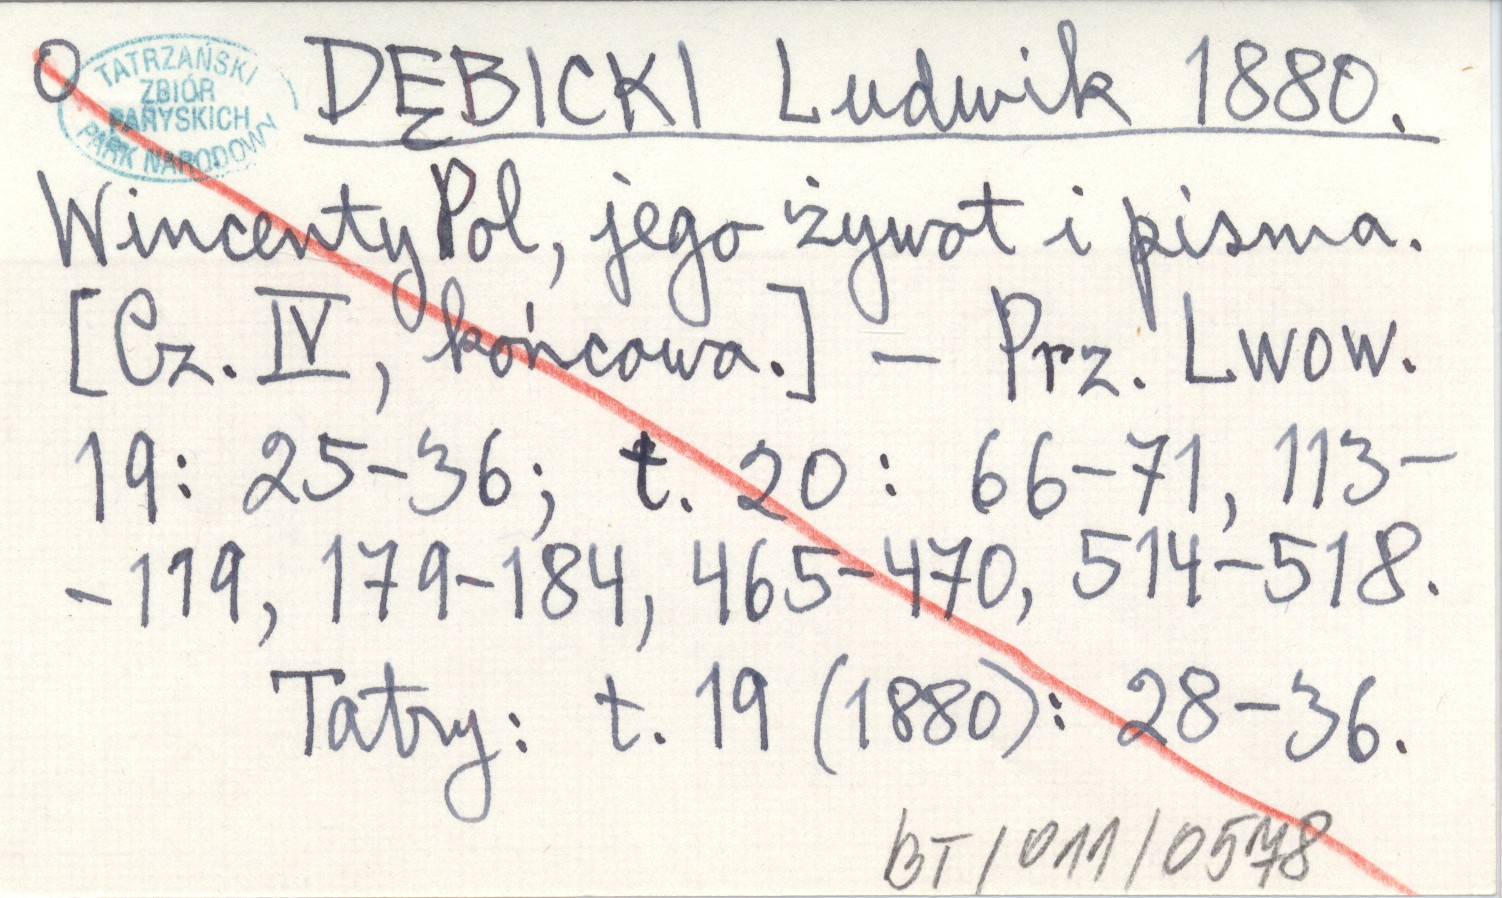 O
TATRZAŃSKI
ZBIÓR
PARYSKICH
PARK NARODOWY
DĘBICKI Ludwik 1880.
Wincenty Pol, jego żywot i pisma.
[Cz. IV, końcowa.] — Prz. Lwow.
19: 25-36; t. 20: 66-71, 113-
-119, 179-184, 465-470, 514-518.
Tatry: t. 19 (1880): 28-36.
BT/011/0578